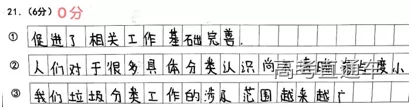 21.（6分） 0分
① 促进了相关工作基础完善.
② 人们对于很多具体分类认识尚 度小
③ 我们垃圾分类工作的涉及范围越来越广